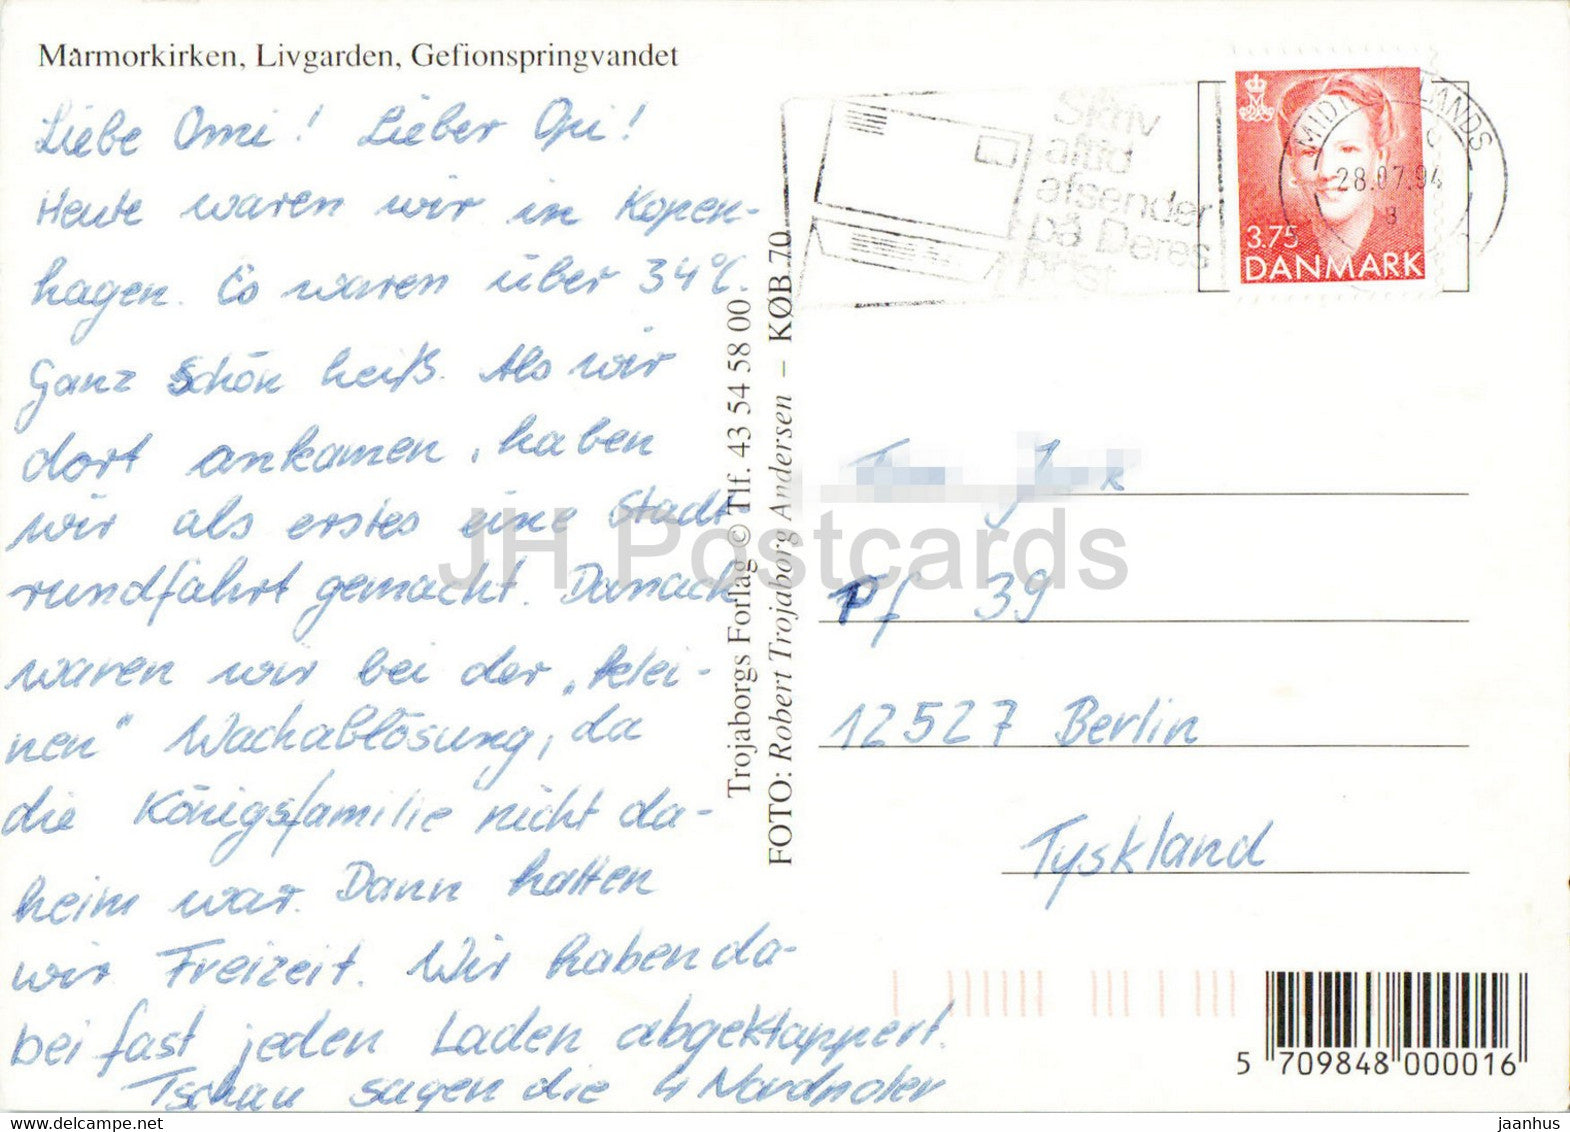 Marmorkirken, Livgarden, Gefionspringvandet
Liebe Omi! Lieber Opi!
Heute waren wir in Kopen-
hagen. Es waren über 34°C.
Ganz schön heiß. Als wir
dort ankamen, haben
wir als erstes eine Stadt-
rundfahrt gemacht. Danach
waren wir bei der „klei-
nen“ Wachablösung, da
die Königsfamilie nicht da-
heim war. Dann hatten
wir Freizeit. Wir haben da-
bei fast jeden Laden abgeklappert.
Tschau sagen die 4 Nordholer
Trojaborgs Forlag © Tlf. 43 54 58 00
FOTO: Robert Trojaborg Andersen – KØB 70
Skriv
altid
afsender
på Deres
28.07.94
3.75
DANMARK
Pf 39
12527 Berlin
Tyskland
5 709848 000016
JH Postcards
www.delcampe.net
jaanhus